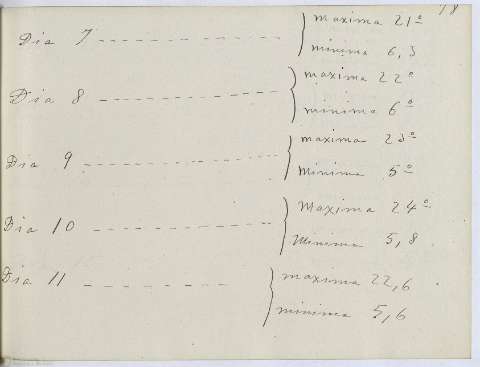 18
maxima 21º
Dia 7
minima 6,3
maxima 22º
Dia 8
minima 6º
maxima 23º
Dia 9
minima 5º
maxima 24º
Dia 10
minima 5,8
maxima 22,6
Dia 11
minima 5,6